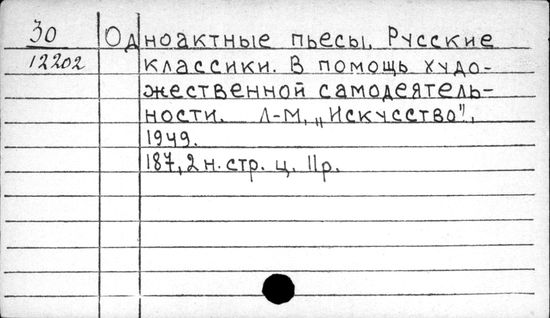 30 Одноактные пьесы. Русские
12202 классики. В помощь худо-
жественной самодеятель-
ности. Л-М, „Искусство",
1949.
187, 2 н. стр. ц. 11р.